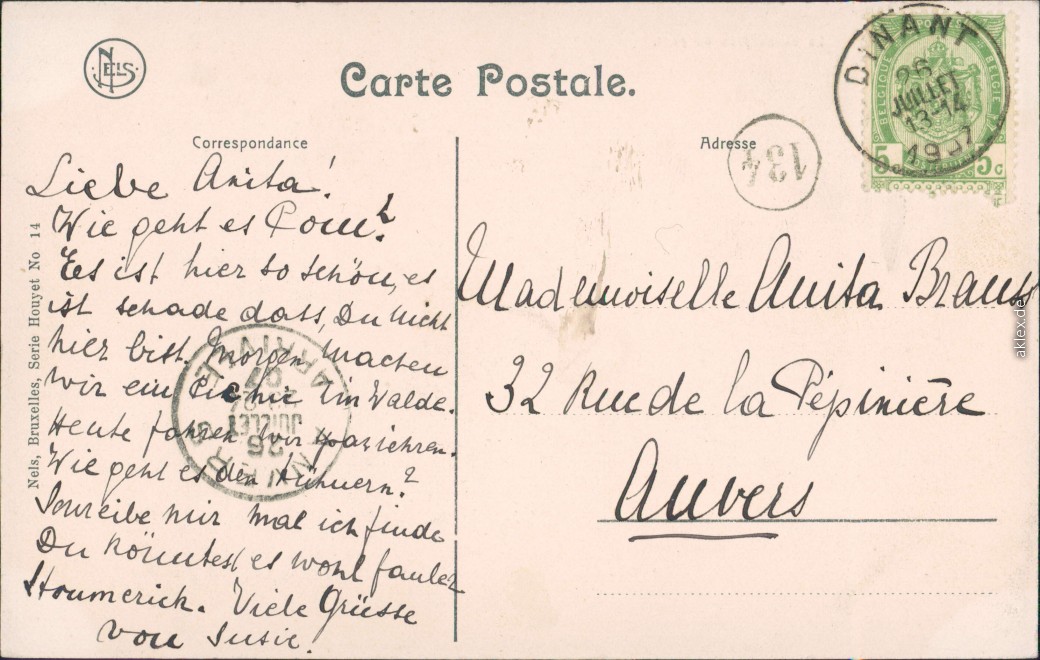 NELS
Carte Postale.
Correspondance
Adresse
134
DINANT
26
JUILLET
13-14
1907
BELGIQUE POSTES BELGIE
5c 5c
Liebe Anita!
Wie geht es Pom?
Es ist hier so schön, es
ist schade dass, Du nicht
hier bist. Morgen machen
wir ein Picknic im Walde.
Heute fahren wir spazieren.
Wie geht es den Hühnern?
Schreibe mir mal ich finde
Du könntest es wohl fauler
Viele Grüsse
von Susie.
ANVERS
26
JUILLET
07
ARRIVEE
Mademoiselle Anita Brauss
32 Rue de la Pépinière
Anvers
Nels, Bruxelles, Serie Houyet No 14
aklex.de